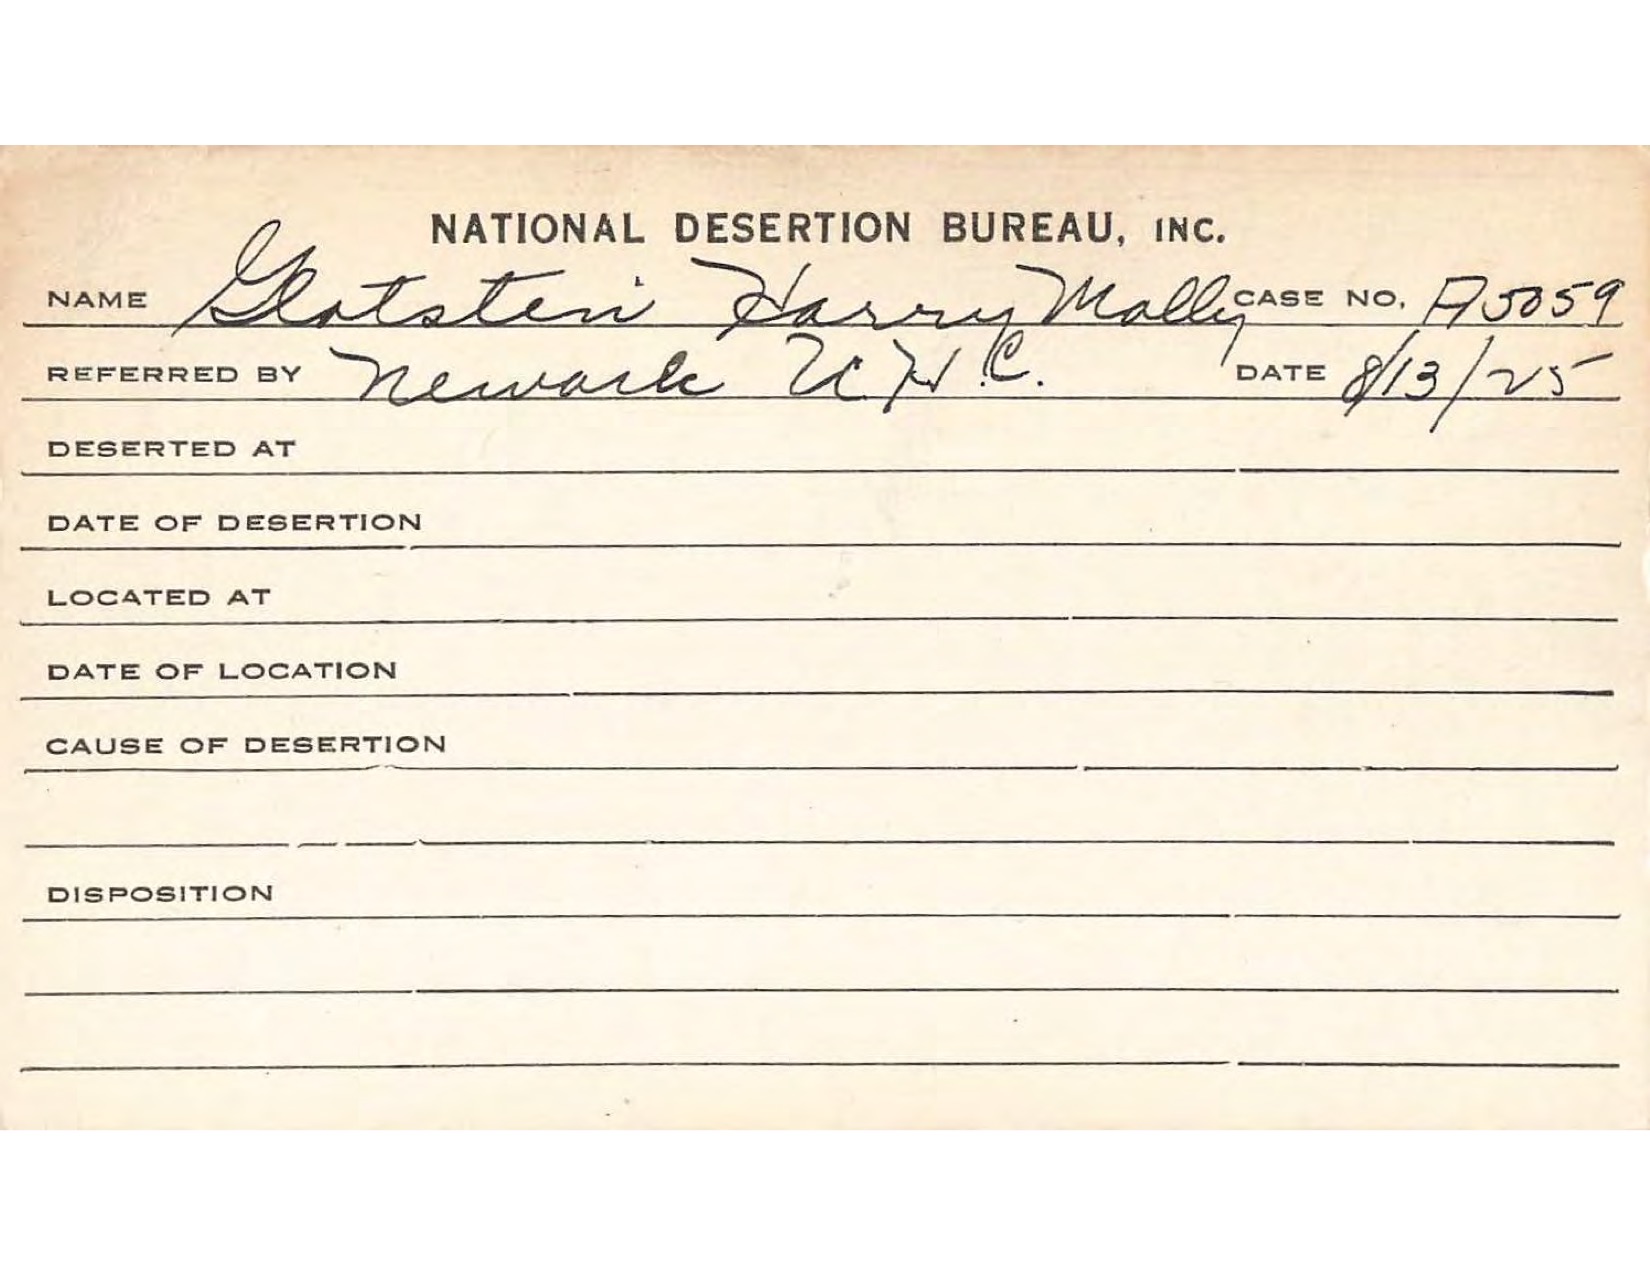 NATIONAL DESERTION BUREAU, INC.
NAME Glotstein Harry Molly CASE NO. A5059
REFERRED BY Newark U.H.C. DATE 8/13/25
DESERTED AT
DATE OF DESERTION
LOCATED AT
DATE OF LOCATION
CAUSE OF DESERTION
DISPOSITION